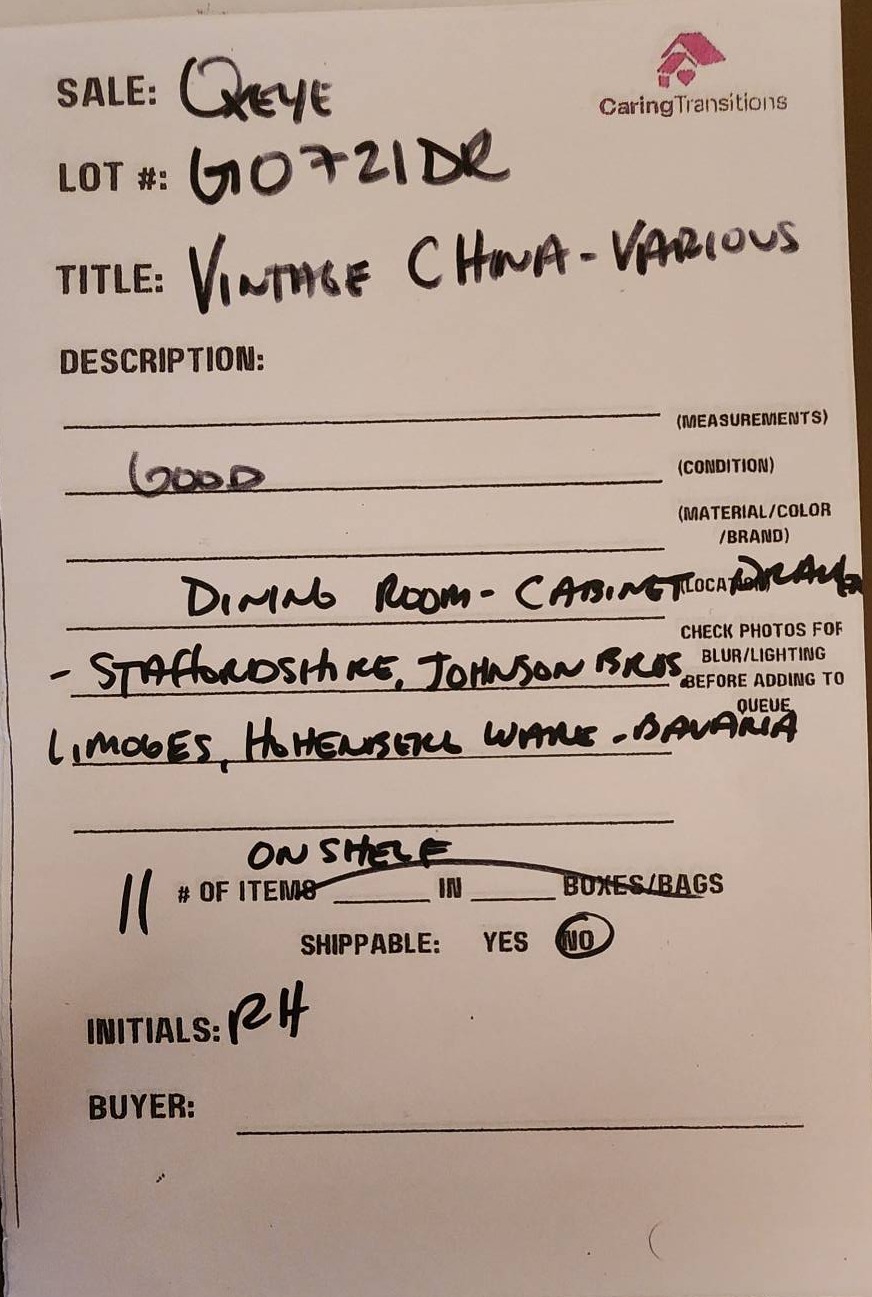 CaringTransitions
SALE: QKEYE
LOT #: G0721DR
TITLE: VINTAGE CHINA - VARIOUS
DESCRIPTION:
(MEASUREMENTS)
GOOD (CONDITION)
(MATERIAL/COLOR
/BRAND)
DINING ROOM - CABINET (LOCATION)
CHECK PHOTOS FOR
BLUR/LIGHTING
BEFORE ADDING TO
QUEUE
- STAFFORDSHIRE, JOHNSON BROS
LIMOGES, HOHENBERG WARE - BAVARIA
ON SHELF
11 # OF ITEMS ____ IN ____ BOXES/BAGS
SHIPPABLE: YES NO
INITIALS: RH
BUYER: